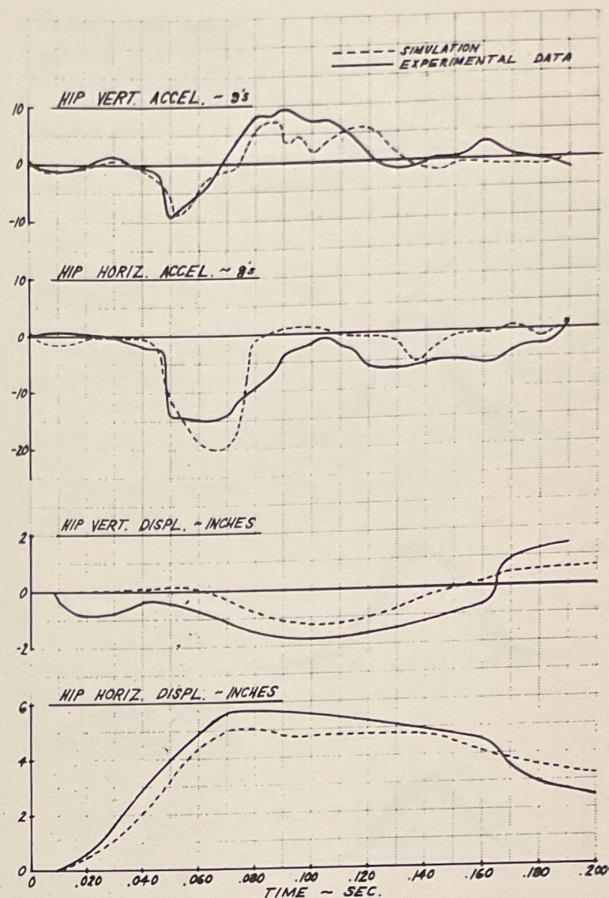 SIMULATION
EXPERIMENTAL DATA
HIP VERT. ACCEL. ~ g's
10
0
-10
HIP HORIZ. ACCEL. ~ g's
10
0
-10
-20
HIP VERT. DISPL. ~ INCHES
2
0
-2
HIP HORIZ. DISPL. ~ INCHES
6
4
2
0
0 .020 .040 .060 .080 .100 .120 .140 .160 .180 .200
TIME ~ SEC.